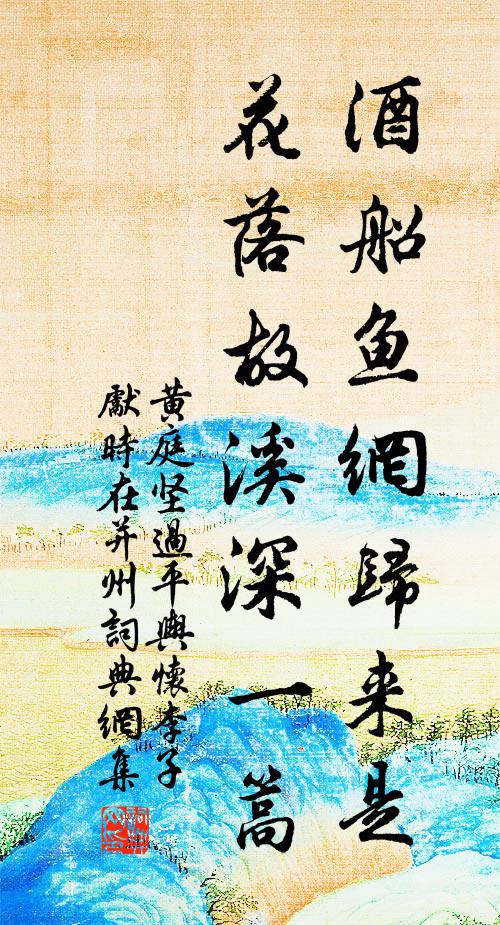 酒船鱼網歸来是
花落故溪深一篙
黄庭坚過平輿懷李子
獻時在并州詞典網集